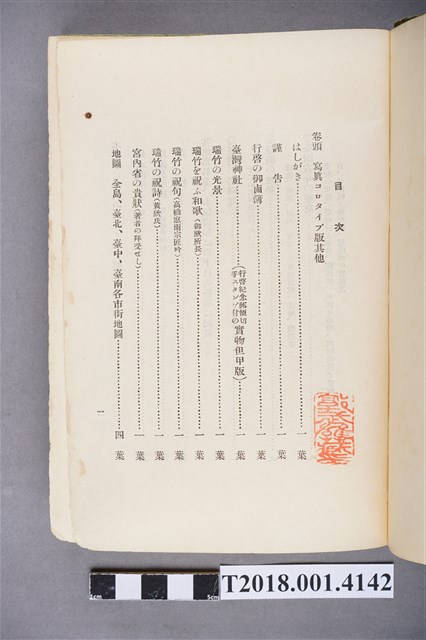 目次
卷頭 寫眞コロタイプ版其他
はしがき………一葉
謹告………一葉
行啓の御鹵簿………一葉
臺灣神社………(行啓紀念郵便切手スタンプ付の實物但甲版)………一葉
瑞竹の光景………一葉
瑞竹を祝ふ和歌(御歌所長)………一葉
瑞竹の祝句(高橋窓雨宗匠吟)………一葉
瑞竹の祝詩(黃欣氏)………一葉
宮內省の貴狀(著者の拜受せし)………一葉
地圖 全島、臺北、臺中、臺南各市街地圖………四葉
一
1cm
5cm
T2018.001.4142